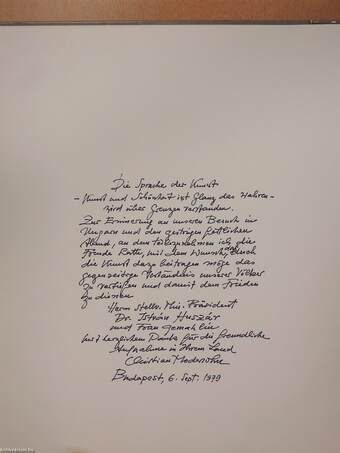 Die Sprache der Kunst
- Kunst und Schönheit ist Glanz des Wahren -
wird über Grenzen verstanden.
Zur Erinnerung an unseren Besuch in
Ungarn und den gestrigen festlichen
Abend, an dem teilzunehmen ich die
Freude hatte, mit dem Wunsch, daß auch
die Kunst dazu beitragen möge das
gegenseitige Verständnis unserer Völker
zu vertiefen und damit dem Frieden
zu dienen
Herrn stellv. Min. Präsident
Dr. István Huszár
und Frau Gemahlin
mit herzlichem Danke für die freundliche
Aufnahme in Ihrem Land
Christian Modersohn
Budapest, 6. Sept. 1979